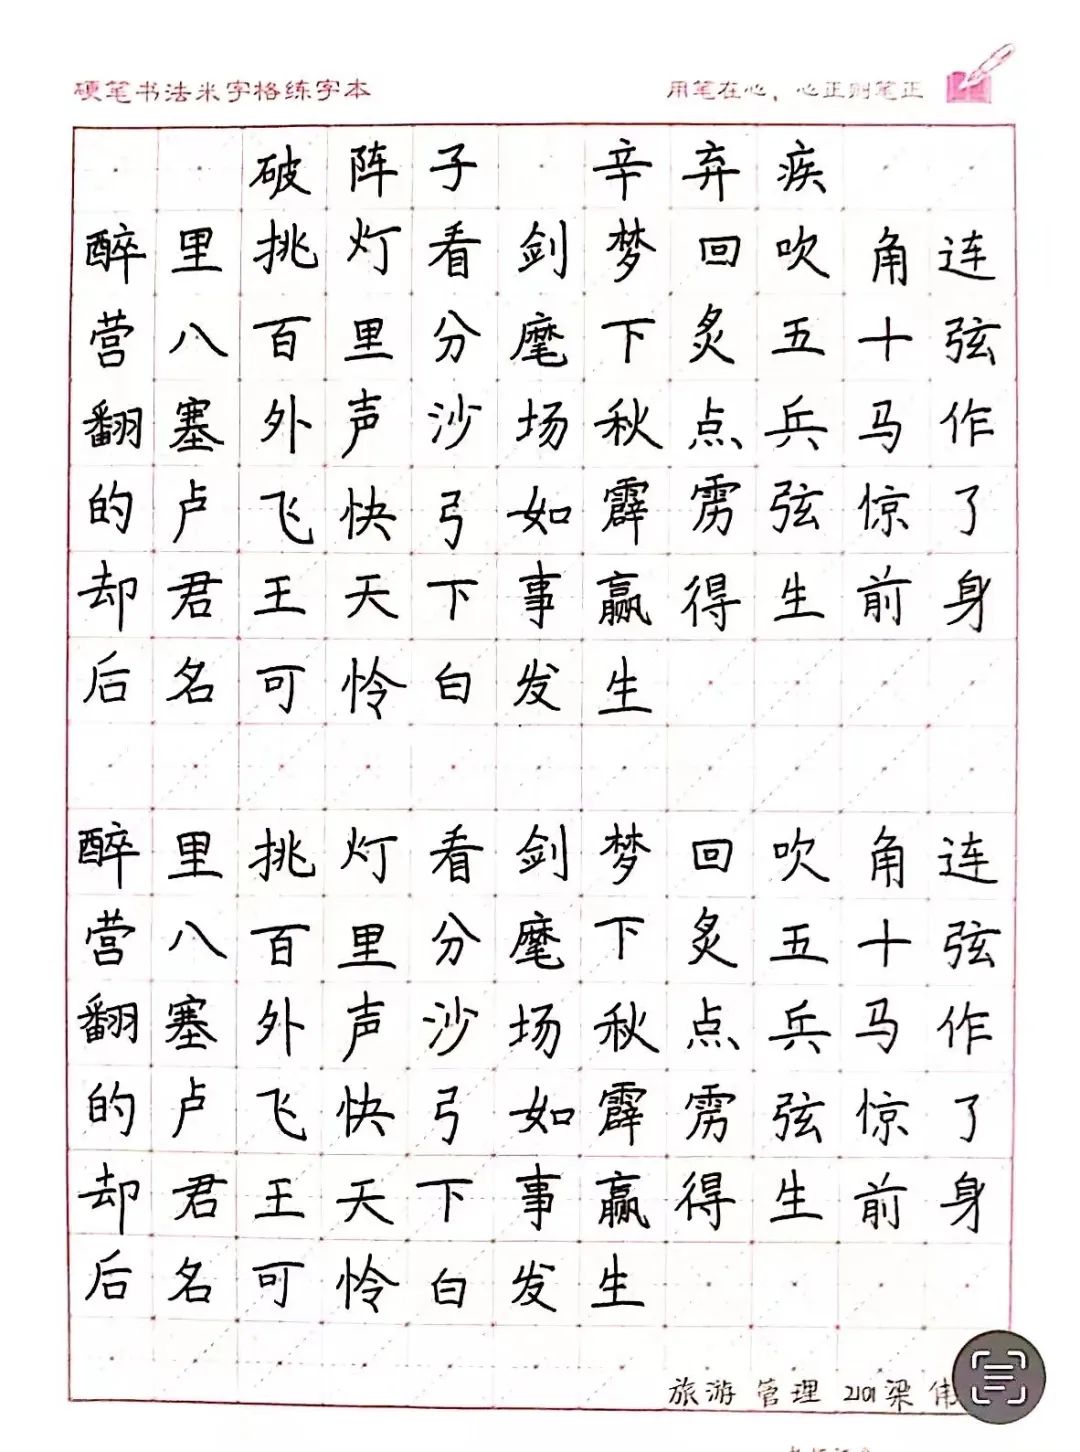 硬笔书法米字格练字本 用笔在心，心正则笔正
破阵子 辛弃疾
醉里挑灯看剑梦回吹角连
营八百里分麾下炙五十弦
翻塞外声沙场秋点兵马作
的卢飞快弓如霹雳弦惊了
却君王天下事赢得生前身
后名可怜白发生
醉里挑灯看剑梦回吹角连
营八百里分麾下炙五十弦
翻塞外声沙场秋点兵马作
的卢飞快弓如霹雳弦惊了
却君王天下事赢得生前身
后名可怜白发生
旅游管理2101梁伟